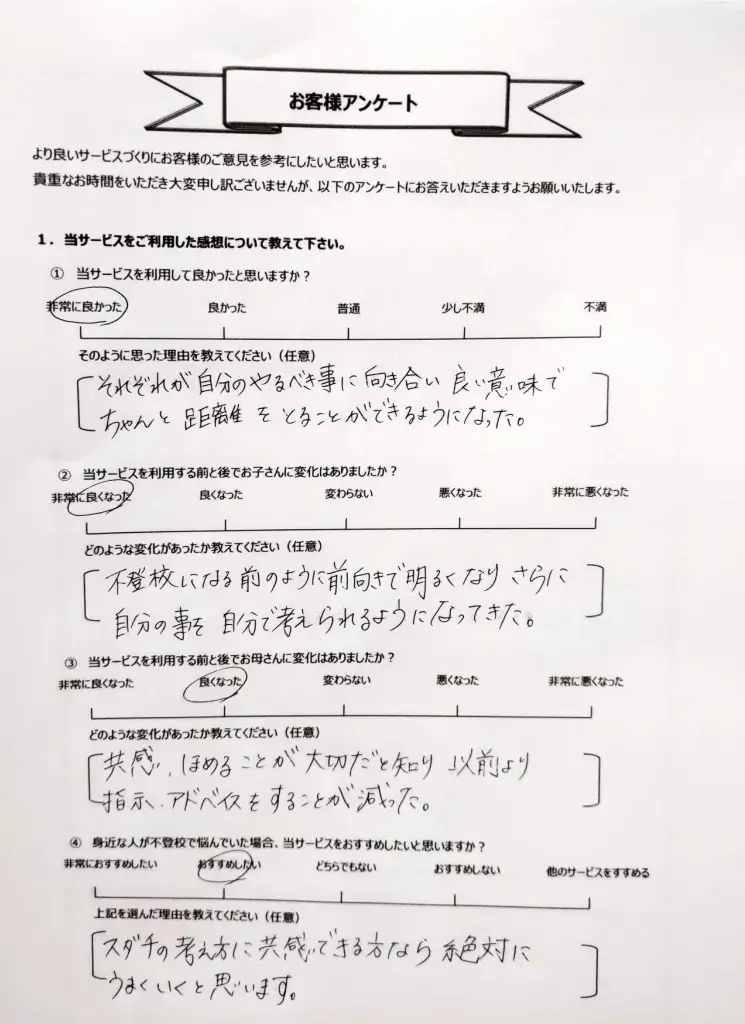 お客様アンケート
より良いサービスづくりにお客様のご意見を参考にしたいと思います。
貴重なお時間をいただき大変申し訳ございませんが、以下のアンケートにお答えいただきますようお願いいたします。
１．当サービスをご利用した感想について教えて下さい。
① 当サービスを利用して良かったと思いますか？
非常に良かった 良かった 普通 少し不満 不満
そのように思った理由を教えてください（任意）
それぞれが自分のやるべき事に向き合い良い意味で
ちゃんと距離をとることができるようになった。
② 当サービスを利用する前と後でお子さんに変化はありましたか？
非常に良くなった 良くなった 変わらない 悪くなった 非常に悪くなった
どのような変化があったか教えてください（任意）
不登校になる前のように前向きで明るくなりさらに
自分の事を自分で考えられるようになってきた。
③ 当サービスを利用する前と後でお母さんに変化はありましたか？
非常に良くなった 良くなった 変わらない 悪くなった 非常に悪くなった
どのような変化があったか教えてください（任意）
共感、ほめることが大切だと知り以前より
指示、アドバイスをすることが減った。
④ 身近な人が不登校で悩んでいた場合、当サービスをおすすめしたいと思いますか？
非常におすすめしたい おすすめしたい どちらでもない おすすめしない 他のサービスをすすめる
上記を選んだ理由を教えてください（任意）
スダチの考え方に共感できる方なら絶対に
うまくいくと思います。